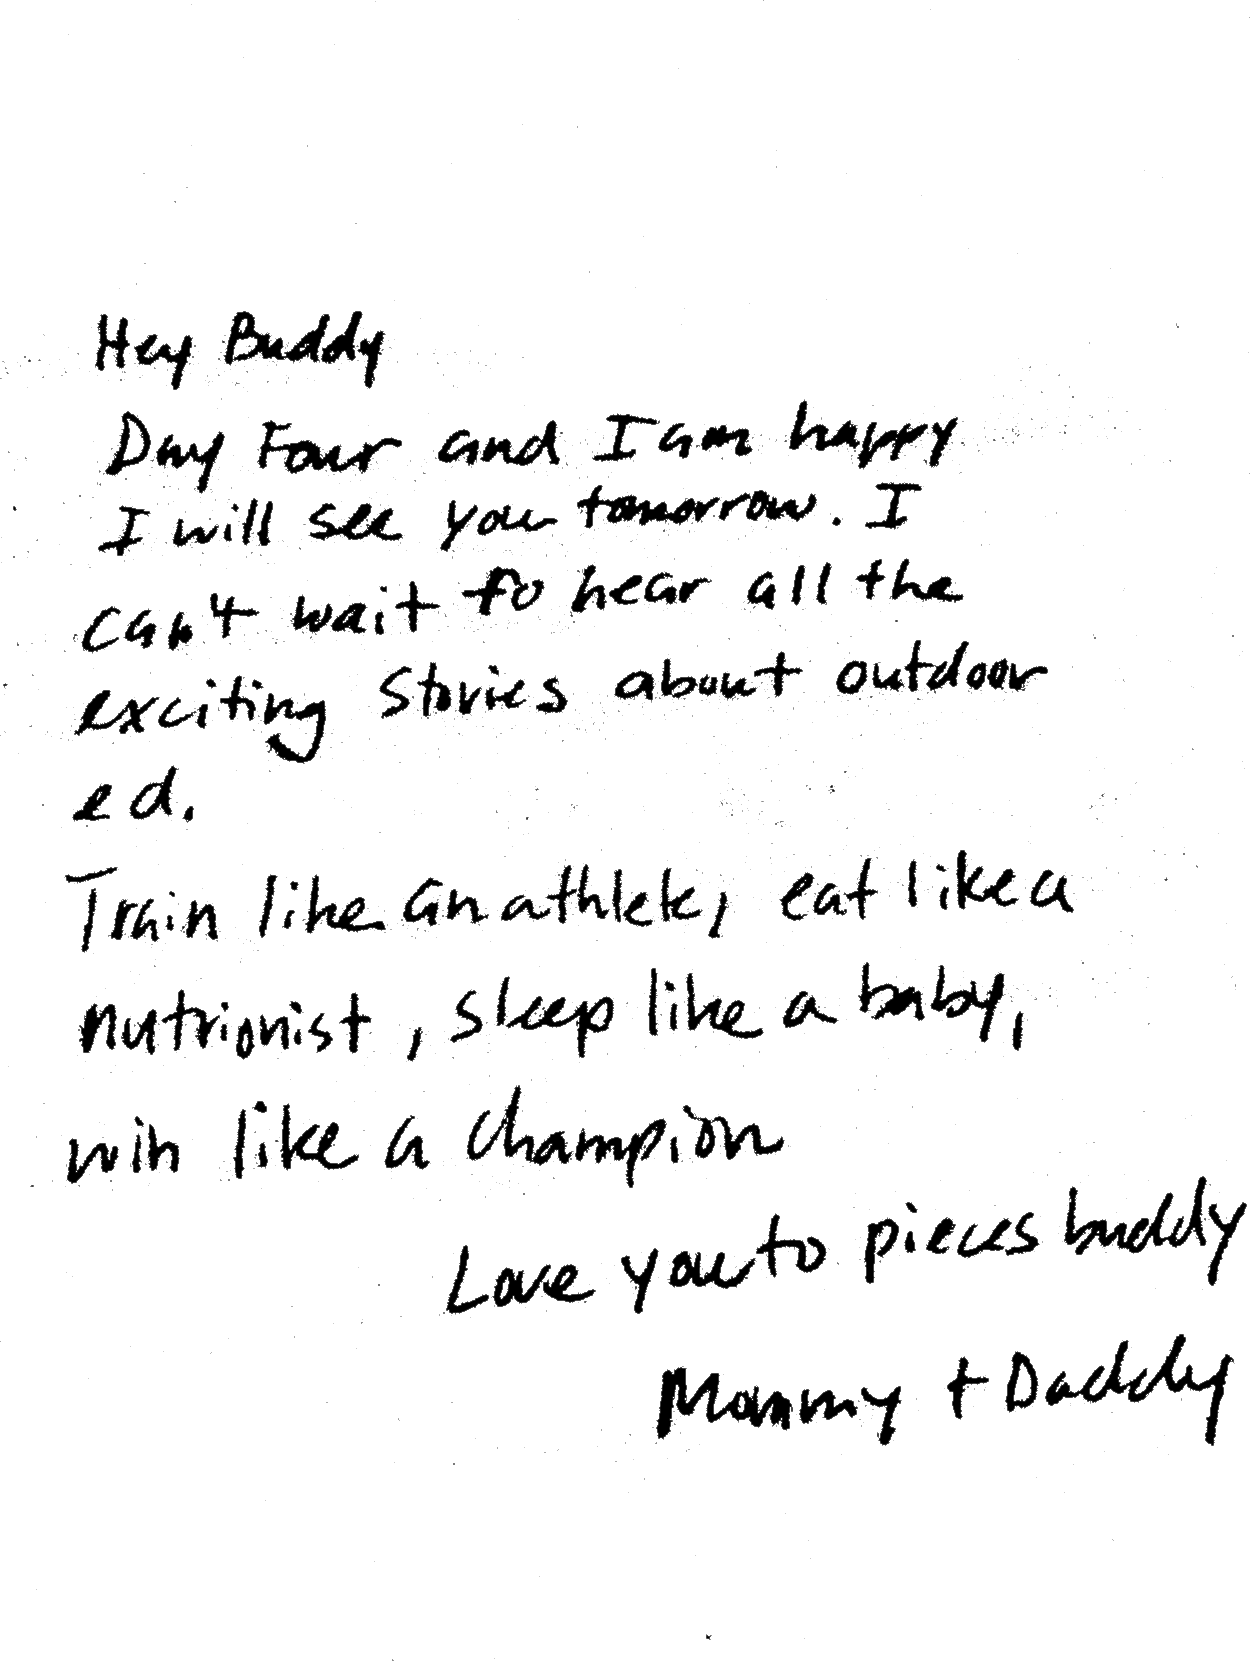 Hey Buddy
Day Four and I am happy
I will see you tomorrow. I
can't wait to hear all the
exciting stories about outdoor
ed.
Train like an athlete, eat like a
nutrionist, sleep like a baby,
win like a champion
Love you to pieces buddy
Mommy + Daddy